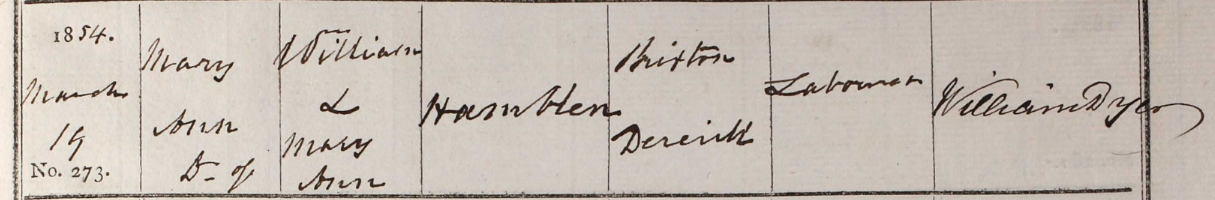 1854.
March
19
No. 273.
Mary
Ann
Dr. of
William
&
Mary
Ann
Hamblen
Brixton
Dererill
Labourer
William Dyer